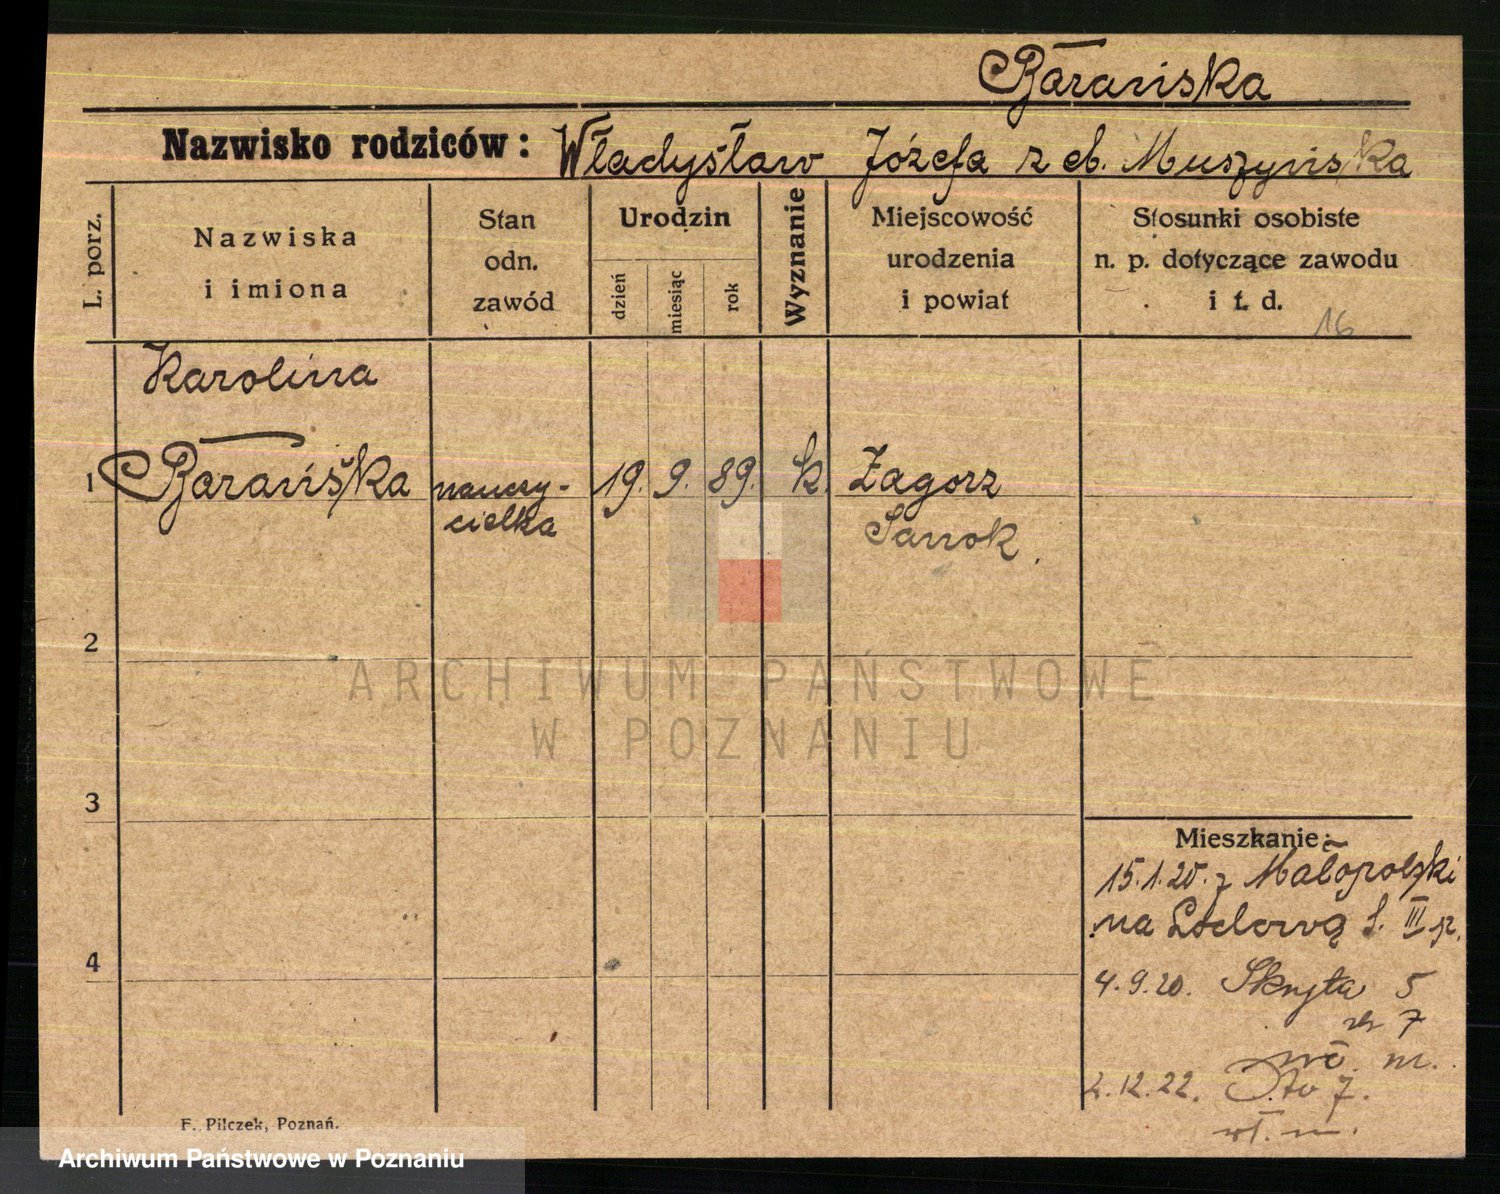 Barańska
Nazwisko rodziców: Władysław Józefa z d. Muszyńska
L. porz.
Nazwiska
i imiona
Stan
odn.
zawód
Urodzin
dzień
miesiąc
rok
Wyznanie
Miejscowość
urodzenia
i powiat
Stosunki osobiste
n. p. dotyczące zawodu
i t. d.
16
Karolina
1 Barańska nauczy- 19. 9. 89. k. Zagorz
cielka Sanok.
2
ARCHIWUM PAŃSTWOWE
W POZNANIU
3
Mieszkanie:
15.1.20. z Małopolski
na Lodową 1. III p.
4
4.9.20. Skryta 5
7
m.
2.12.22. 7.
F. Pilczek, Poznań.
Archiwum Państwowe w Poznaniu